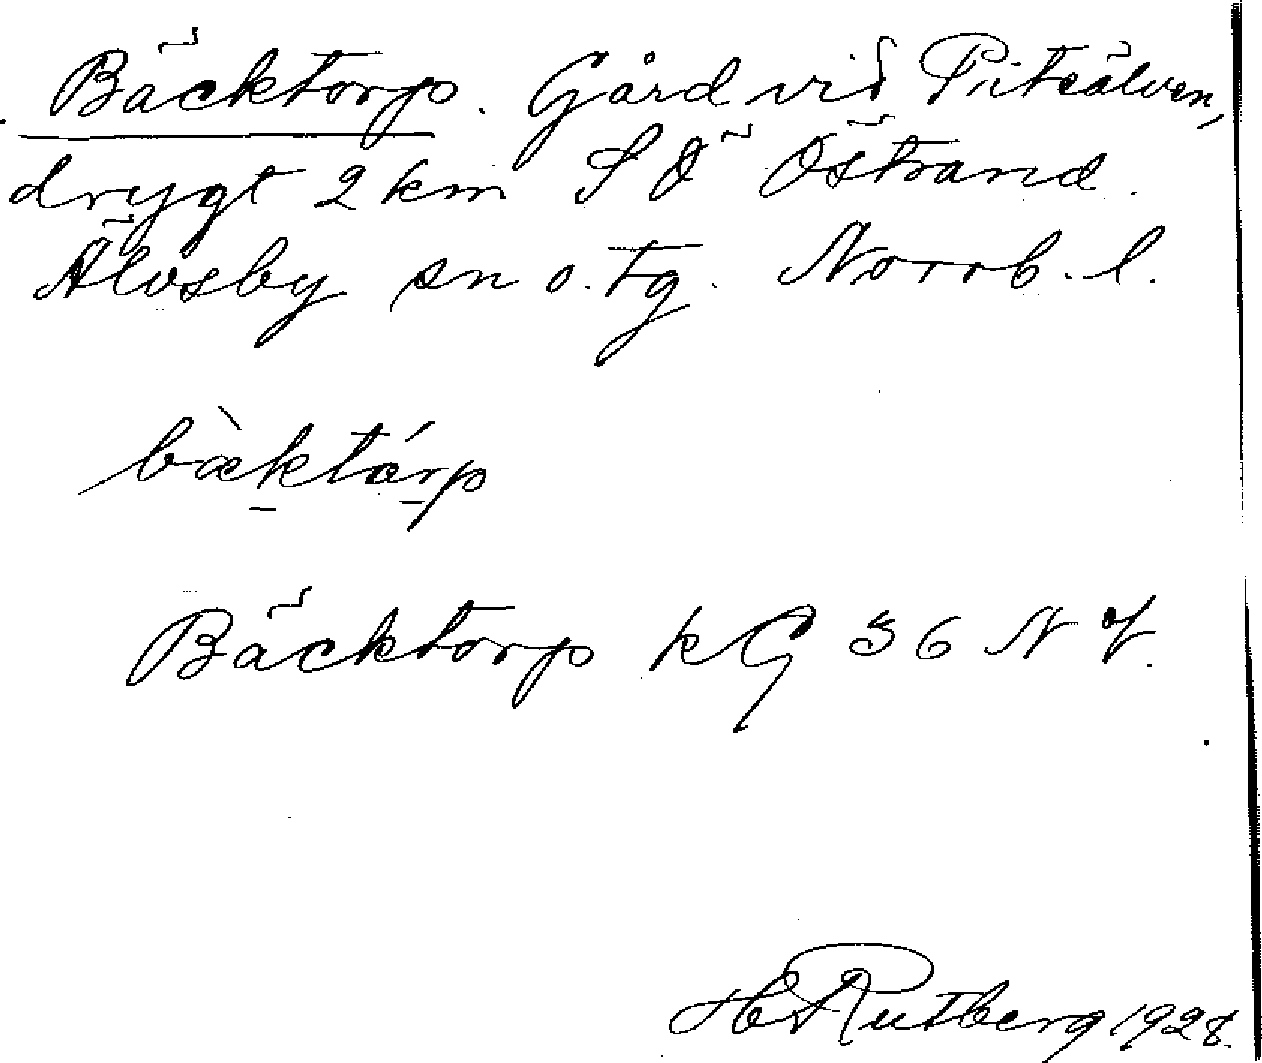 Bäcktorp. Gård vid Pitsälven,
drygt 2 km SÖ Östrand.
Älvsby sn o. tg. Norrb. l.
bæ̀którp
Bäcktorp kG 36 NV.
H Rutberg 1928.